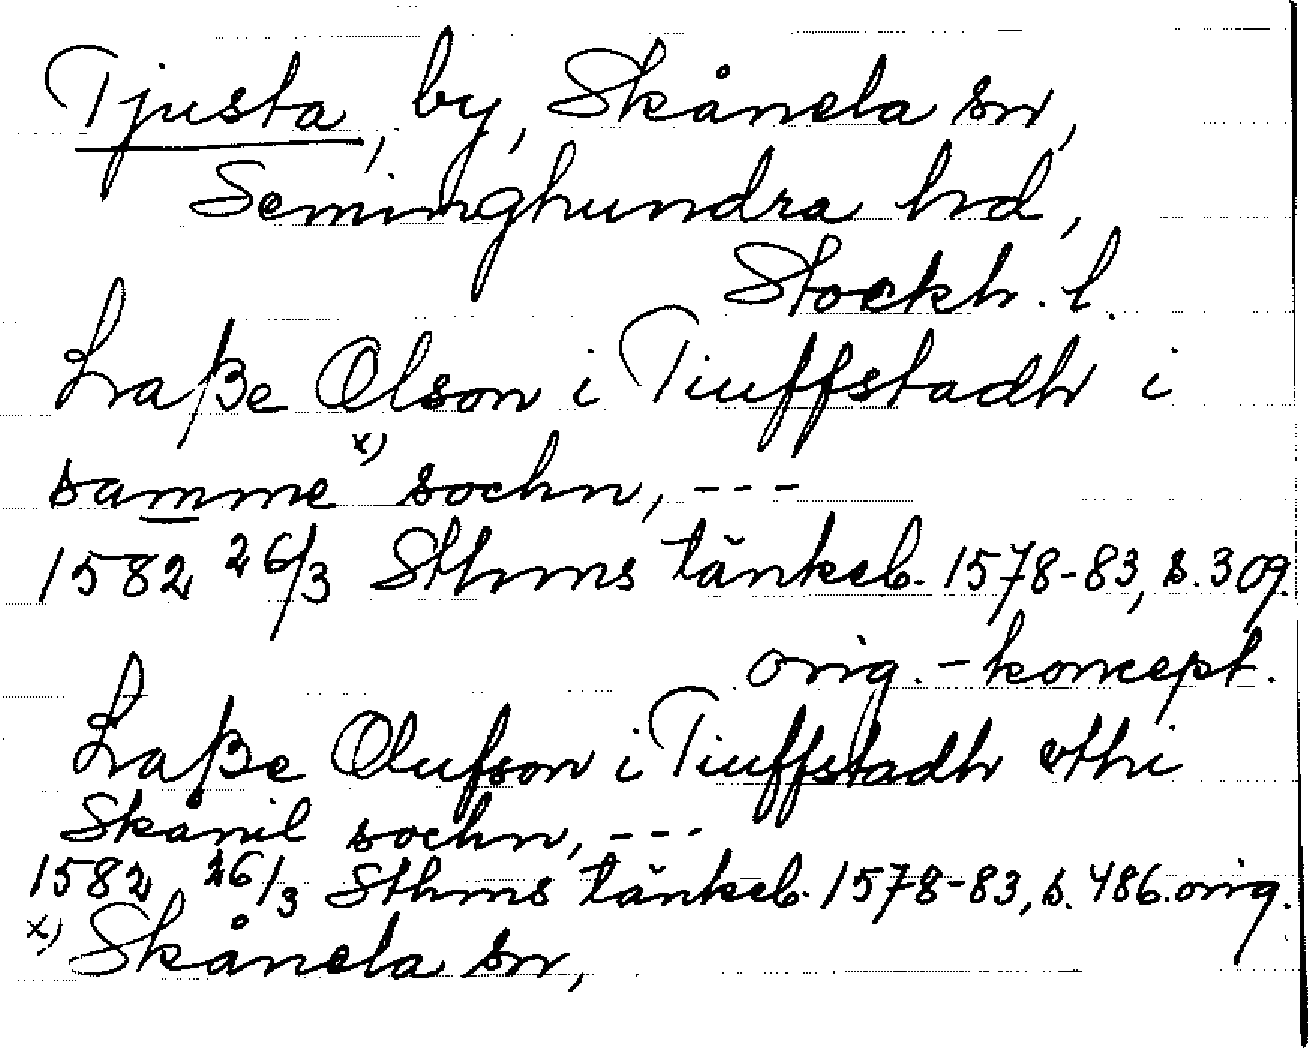 Tjusta, by, Skånela sn,
Seminghundra hd,
Stockh. l.
Laße Olson i Tiuffstadh i
samme x) sochn, ---
1582 26/3 Sthms tänkeb. 1578-83, s. 309.
orig.-koncept.
Laße Olufson i Tiuffstadh vthi
Skånil sochn, ---
1582 26/3 Sthms tänkeb. 1578-83, s. 486. orig.
x) Skånela sn,